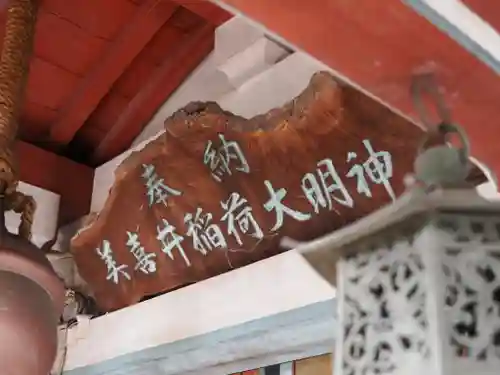 奉納
美喜井稲荷大明神